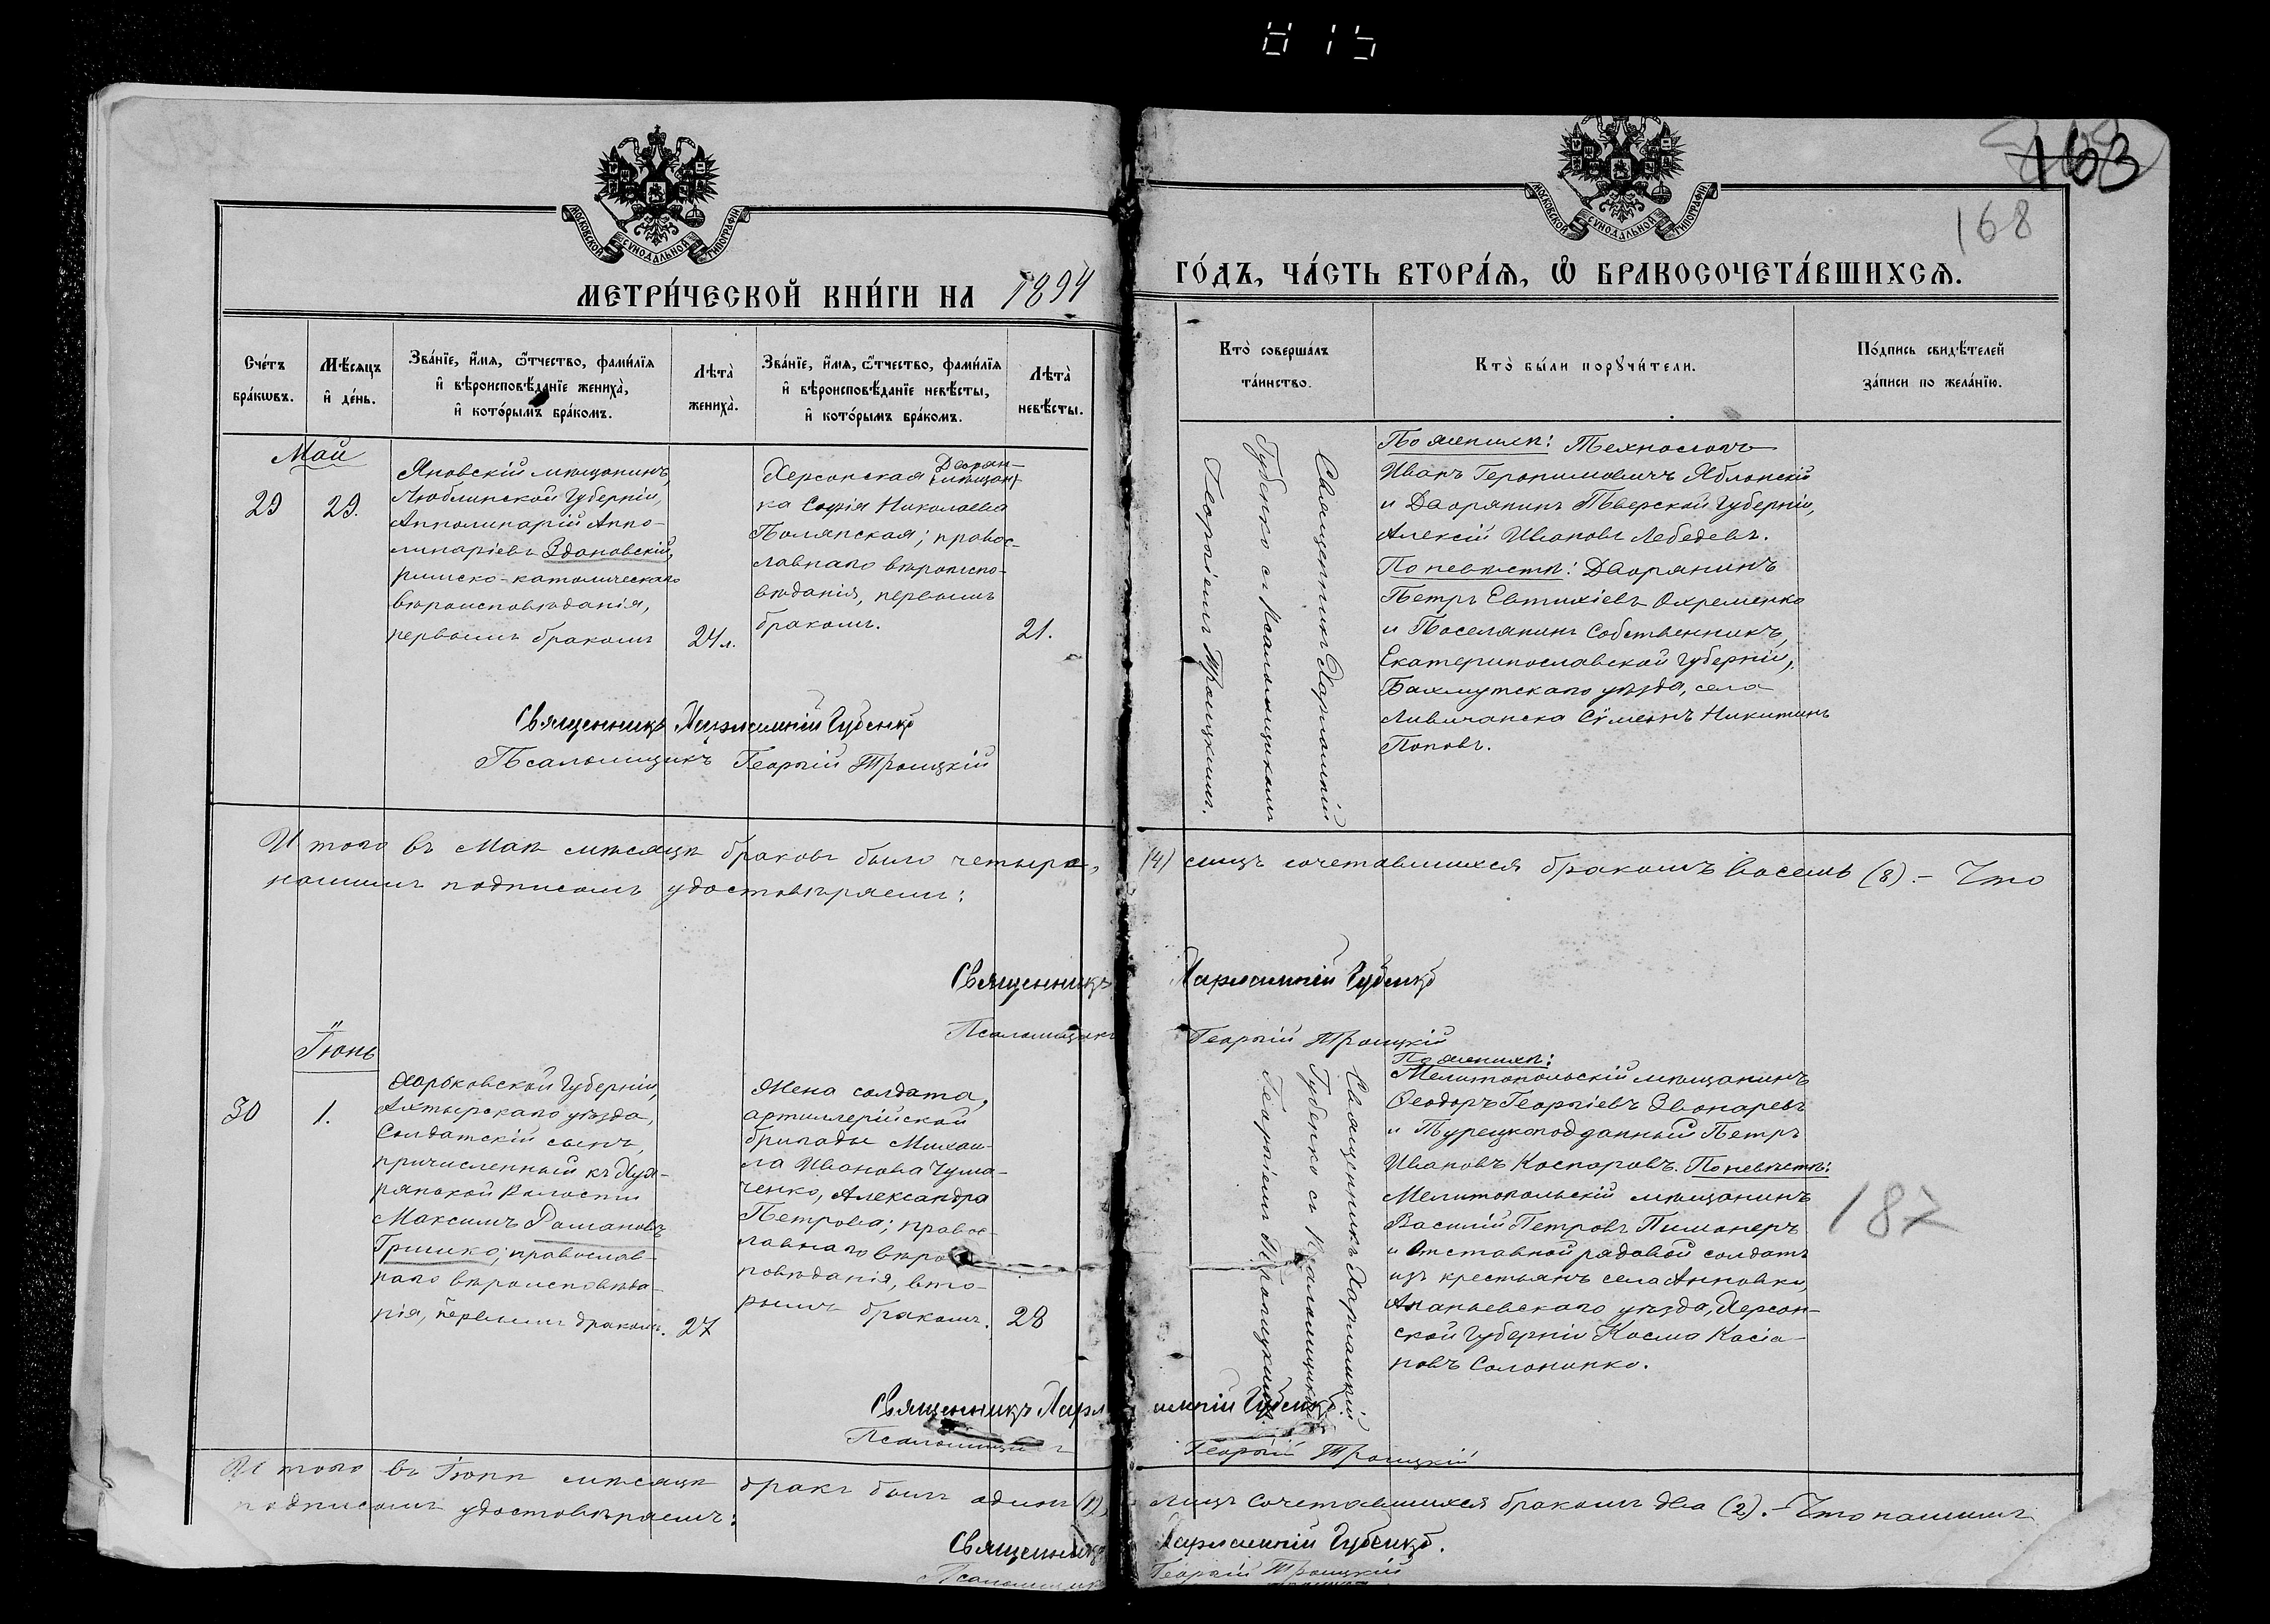 815
163
168
МОСКОВСКОЙ СѴНОДАЛЬНОЙ ТИПОГРАФІИ
МОСКОВСКОЙ СѴНОДАЛЬНОЙ ТИПОГРАФІИ
МЕТРИ́ЧЕСКОЙ КНИ́ГИ НА 1894
ГО́ДЪ, ЧА́СТЬ ВТОРА́Я, Ѽ БРАКОСОЧЕТА́ВШИХСѦ.
Сче́тъ
бра́кѡвъ.
Мѣ́сяцъ
и҆ де́нь.
Зва́нїе, и҆́мѧ, ѻ҆́тчество, фами́лїѧ
и҆ вѣроисповѣ́данїе жениха̀,
и҆ кото́рымъ бра́комъ.
Лѣта̀
жениха̀.
Зва́нїе, и҆́мѧ, ѻ҆́тчество, фами́лїѧ
и҆ вѣроисповѣ́данїе невѣ́сты,
и҆ кото́рымъ бра́комъ.
Лѣта̀
невѣ́сты.
Кто̀ соверша́лъ
та́инство.
Кто̀ бы́ли порꙋчи́тели.
По́дпись свидѣ́телей
за́писи по жела́нїю.
Май
29
29.
Яновскій мѣщанинъ,
Люблинской Губерніи,
Апполинарій Аппо-
линаріевъ Здановскій,
римско-католическаго
вѣроисповѣданія,
первымъ бракомъ
24 л.
Дворян-
Херсонская мѣщан-
ка Софія Николаева
Полянская; правос-
лавнаго вѣроиспо-
вѣданія, первымъ
бракомъ.
21.
Священникъ Харлампій
Губенко съ псаломщикомъ
Георгіемъ Троицкимъ.
По женихѣ: Технологъ
Иванъ Геронимовичъ Яблонскій
и Дворянинъ Тверской Губерніи,
Алексій Ивановъ Лебедевъ.
По невѣстѣ: Дворянинъ
Петръ Евтихіевъ Охременко
и Поселянинъ Собственникъ,
Екатеринославской Губерніи,
Бахмутскаго уѣзда, села
Никитинъ
Поповъ.
Священникъ Харлампій Губенко
Псаломщикъ Георгій Троицкій
Итого въ Маѣ мѣсяцѣ браковъ было четыре, (4) лицъ сочетавшихся бракомъ восемь (8). – Что
нашимъ подписомъ удостовѣряемъ:
Священникъ Харлампій Губенко
Псаломщикъ Георгій Троицкій
Іюнь
30
1.
Харьковской Губерніи,
Ахтырскаго уѣзда,
Солдатскій сынъ,
причисленный къ
Волости
Максимъ Романовъ
Гришко; православ-
наго вѣроисповѣда-
нія, первымъ бракомъ.
27
Жена солдата,
артиллерійской
бригады Михаи-
ла Иванова Чума-
ченко, Александра
Петрова; правос-
лавнаго вѣро
повѣданія, вто-
рымъ бракомъ.
28
Священникъ Харлампій
Губенко съ Псаломщикомъ
Георгіемъ Троицкимъ.
По женихѣ:
Мелитопольскій мѣщанинъ
Ѳеодоръ Георгіевъ Звонаревъ
и Турецкоподданный Петръ
Ивановъ Каспаровъ. По невѣстѣ:
Мелитопольскій мѣщанинъ
Василій Петровъ
и Отставной рядовой солдатъ
изъ крестьянъ села Анновки,
Ананьевскаго уѣзда, Херсон-
ской Губерніи Косма Касіа-
новъ Солонинко.
187
Священникъ Харлампій Губенко.
Псаломщикъ Георгій Троицкій
Итого въ Іюнѣ мѣсяцѣ бракъ былъ одинъ (1), лицъ сочетавшихся бракомъ два (2). – Что нашимъ
подписомъ удостовѣряемъ:
Священникъ Харлампій Губенко.
Псаломщикъ Георгій Троицкій